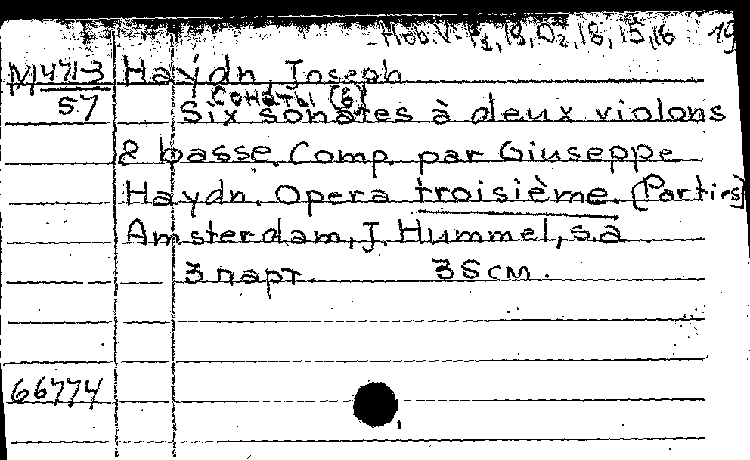 Hob.V-
M 471-3 Haydn, Joseph
57 Сонаты (6)
Six sonates à deux violons
& basse. Comp. par Giuseppe
Haydn. Opera troisième. [Parties]
Amsterdam, J. Hummel, s.a.
3 парт. 35 см.
66774